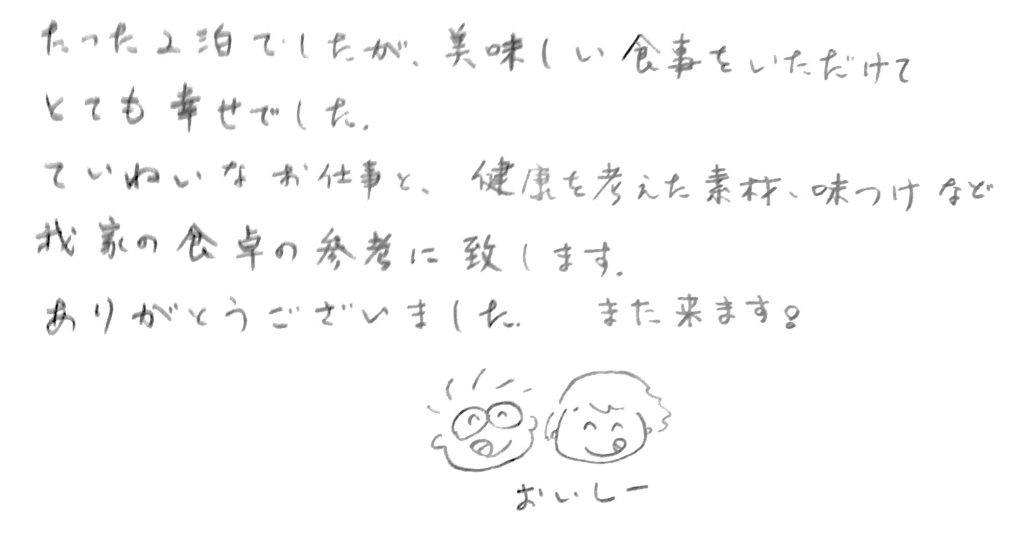 たった2泊でしたが、美味しい食事をいただけて
とても幸せでした。
ていねいなお仕事と、健康を考えた素材、味つけなど
我家の食卓の参考に致します。
ありがとうございました。 また来ます。
おいしー